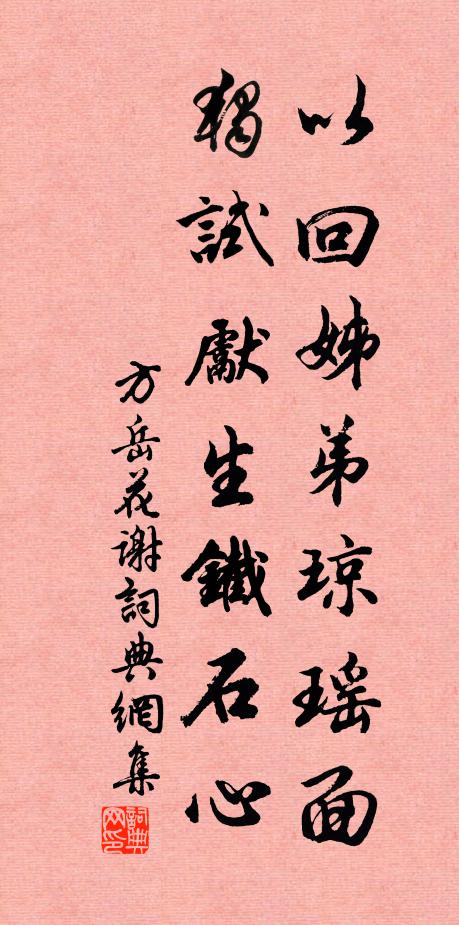 以回姊弟琼瑶面
独試獻生鐵石心
方岳花谢詞典網集
詞典网印